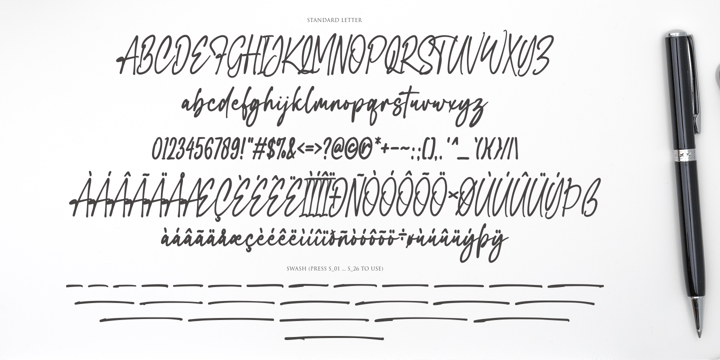 STANDARD LETTER
ABCDEFGHIJKLMNOPQRSTUVWXYZ
abcdefghijklmnopqrstuvwxyz
0123456789!"#$%&<=>?@©®*+-~:;(),.'^_`{}[]/|\
ÀÁÂÃÄÅÆÇÈÉÊËÌÍÎÏÐÑÒÓÔÕÖ×ØÙÚÛÜÝÞß
àáâãäåæçèéêëìíîïðñòóôõö÷øùúûüýþÿ
SWASH (PRESS S_01 ... S_26 TO USE)